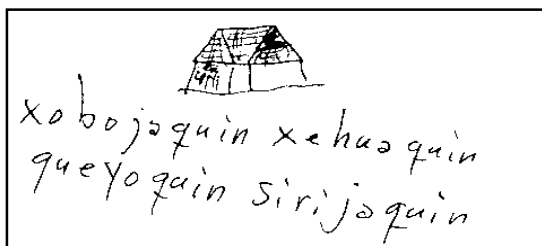 xobojaquin xehuaquin
queyoquin sirijaquin